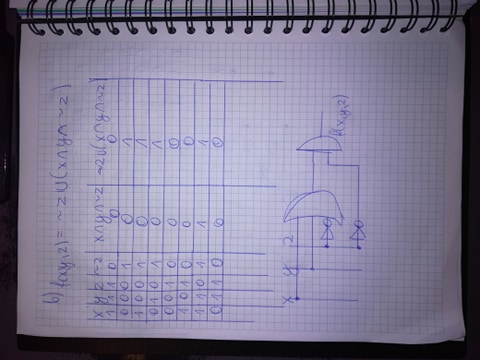 b) f(x,y,z) = ~z U (x∩y∩~z)
x y z ~z x∩y∩~z ~z U (x∩y∩~z)
1 1 1 0 0 0
0 0 0 1 0 1
1 0 0 1 0 1
0 1 0 1 0 1
0 0 1 0 0 0
1 0 1 0 0 0
1 1 0 1 1 1
0 1 1 0 0 0
x y z
f(x,y,z)